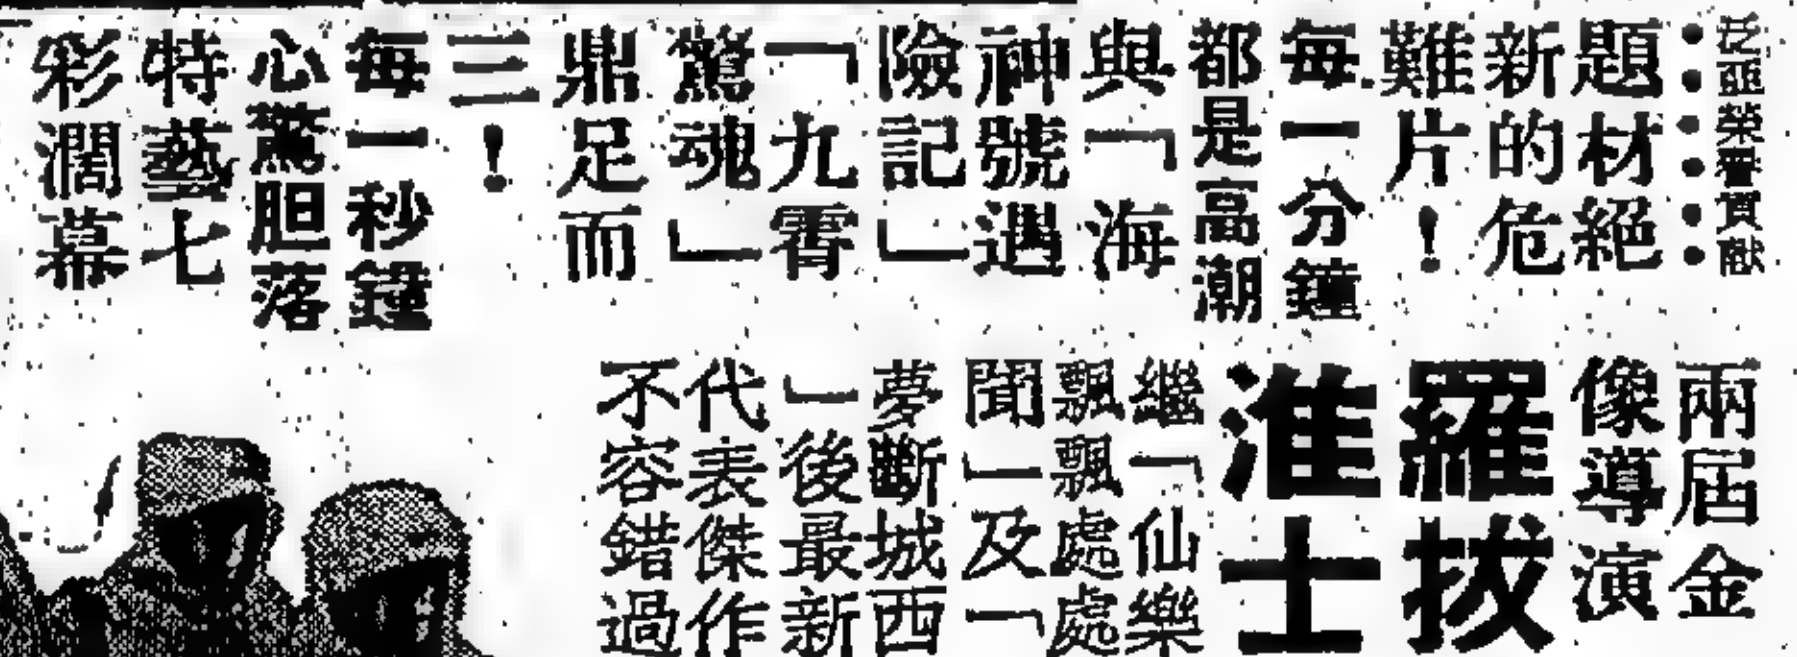 泛亞榮譽貢献
題材絕
新的危
難片！
每一分鐘
都是高潮
與「海
神號遇
險記」
「九霄
驚魂」
鼎足而
三！
每一秒鐘
心驚胆落
特藝七
彩濶幕
兩屆金
像導演
羅拔
淮士
繼「仙樂
飄飄處處
聞」及「
夢斷城西
」後最新
代表傑作
不容錯過